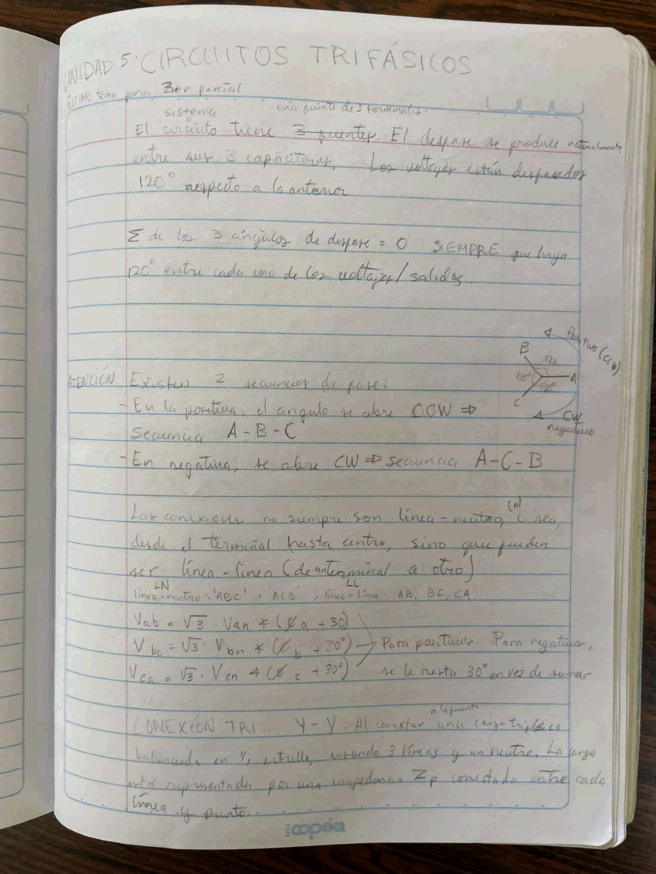 UNIDAD 5: CIRCUITOS TRIFÁSICOS
ÚLTIMO tema para 3er parcial
sistema una fuente de 3 terminales.
El circuito tiene 3 fuentes. El desfase se produce naturalmente
entre sus 3 capacitores. Los voltajes están desfasados
120° respecto a la anterior
Σ de los 3 ángulos de desfase = 0 SIEMPRE que haya
120° entre cada uno de los voltajes/salidas.
Positivo (CCW)
B 120
120° A
C 120°
CW
negativo
ATENCIÓN Existen 2 secuencias de fase:
- En la positiva, el angulo se abre CCW ⇒
secuencia A-B-C
- En negativa, se abre CW ⇒ secuencia A-C-B
(n)
Las conexiones no siempre son línea-neutro, o sea,
desde el terminal hasta centro, sino que pueden
ser línea-línea (de un terminal a otro)
LN LL
línea-neutro: 'ABC' 'ACB' ; línea-línea: AB, BC, CA
Vab = √3 · Van * (ϕa + 30)
Vbc = √3 · Vbn * (ϕb + 30°) Para positivas. Para negativas,
Vca = √3 · Vcn * (ϕc + 30°) se le resta 30° en vez de sumar
a la fuente
CONEXIÓN TRI... Y-Y: Al conectar una carga
balanceada en Y, estrella, usando 3 líneas y un neutro. La carga
está representada por una impedancia Zp conectada entre cada
línea y punto.
copán